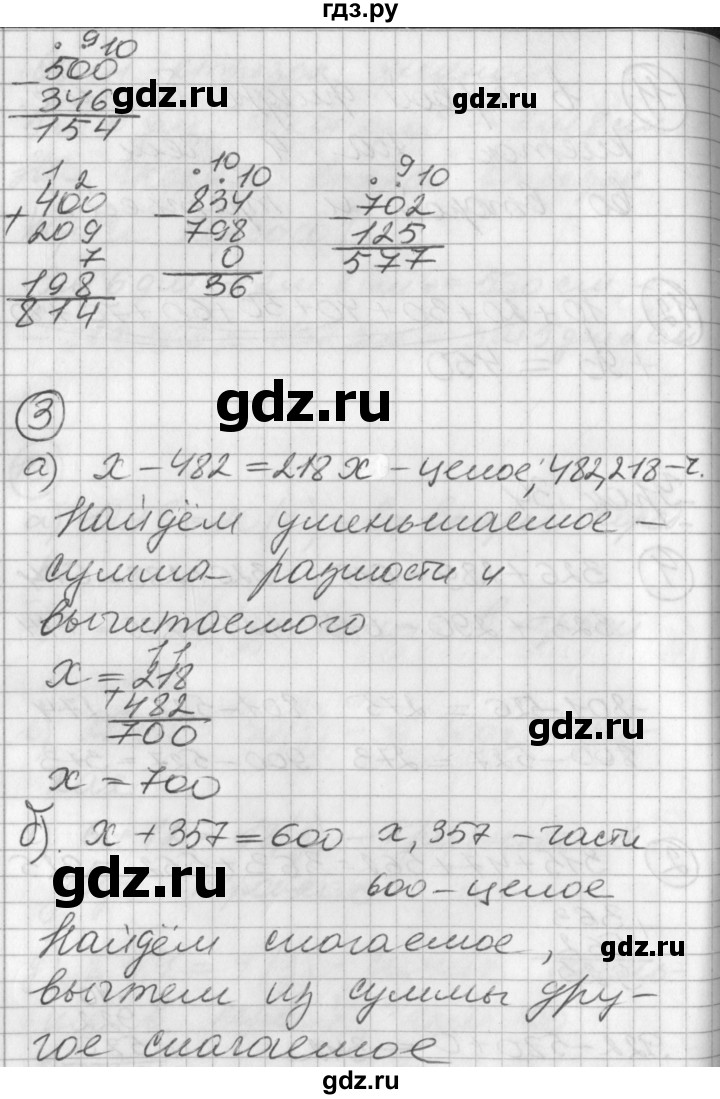 гдз.ру
. 9 10
- 500
346
154
гдз.ру
гдз.ру
1 2
+ 400
209
7
198
814
. 10 . 10
- 834
798
0
36
. 9 . 10
- 702
125
577
3
гдз.ру
а) x - 482 = 218 x - целое; 482, 218 - ч.
Найдём уменьшаемое -
сумма разности и
вычитаемого
1 1
x = 218
+ 482
700
гдз.ру
x = 700
б). x + 357 = 600 x, 357 - части
гдз.ру
600 - целое
Найдём слагаемое,
гдз.ру
вычтем из суммы дру-
гое слагаемое
гдз.ру